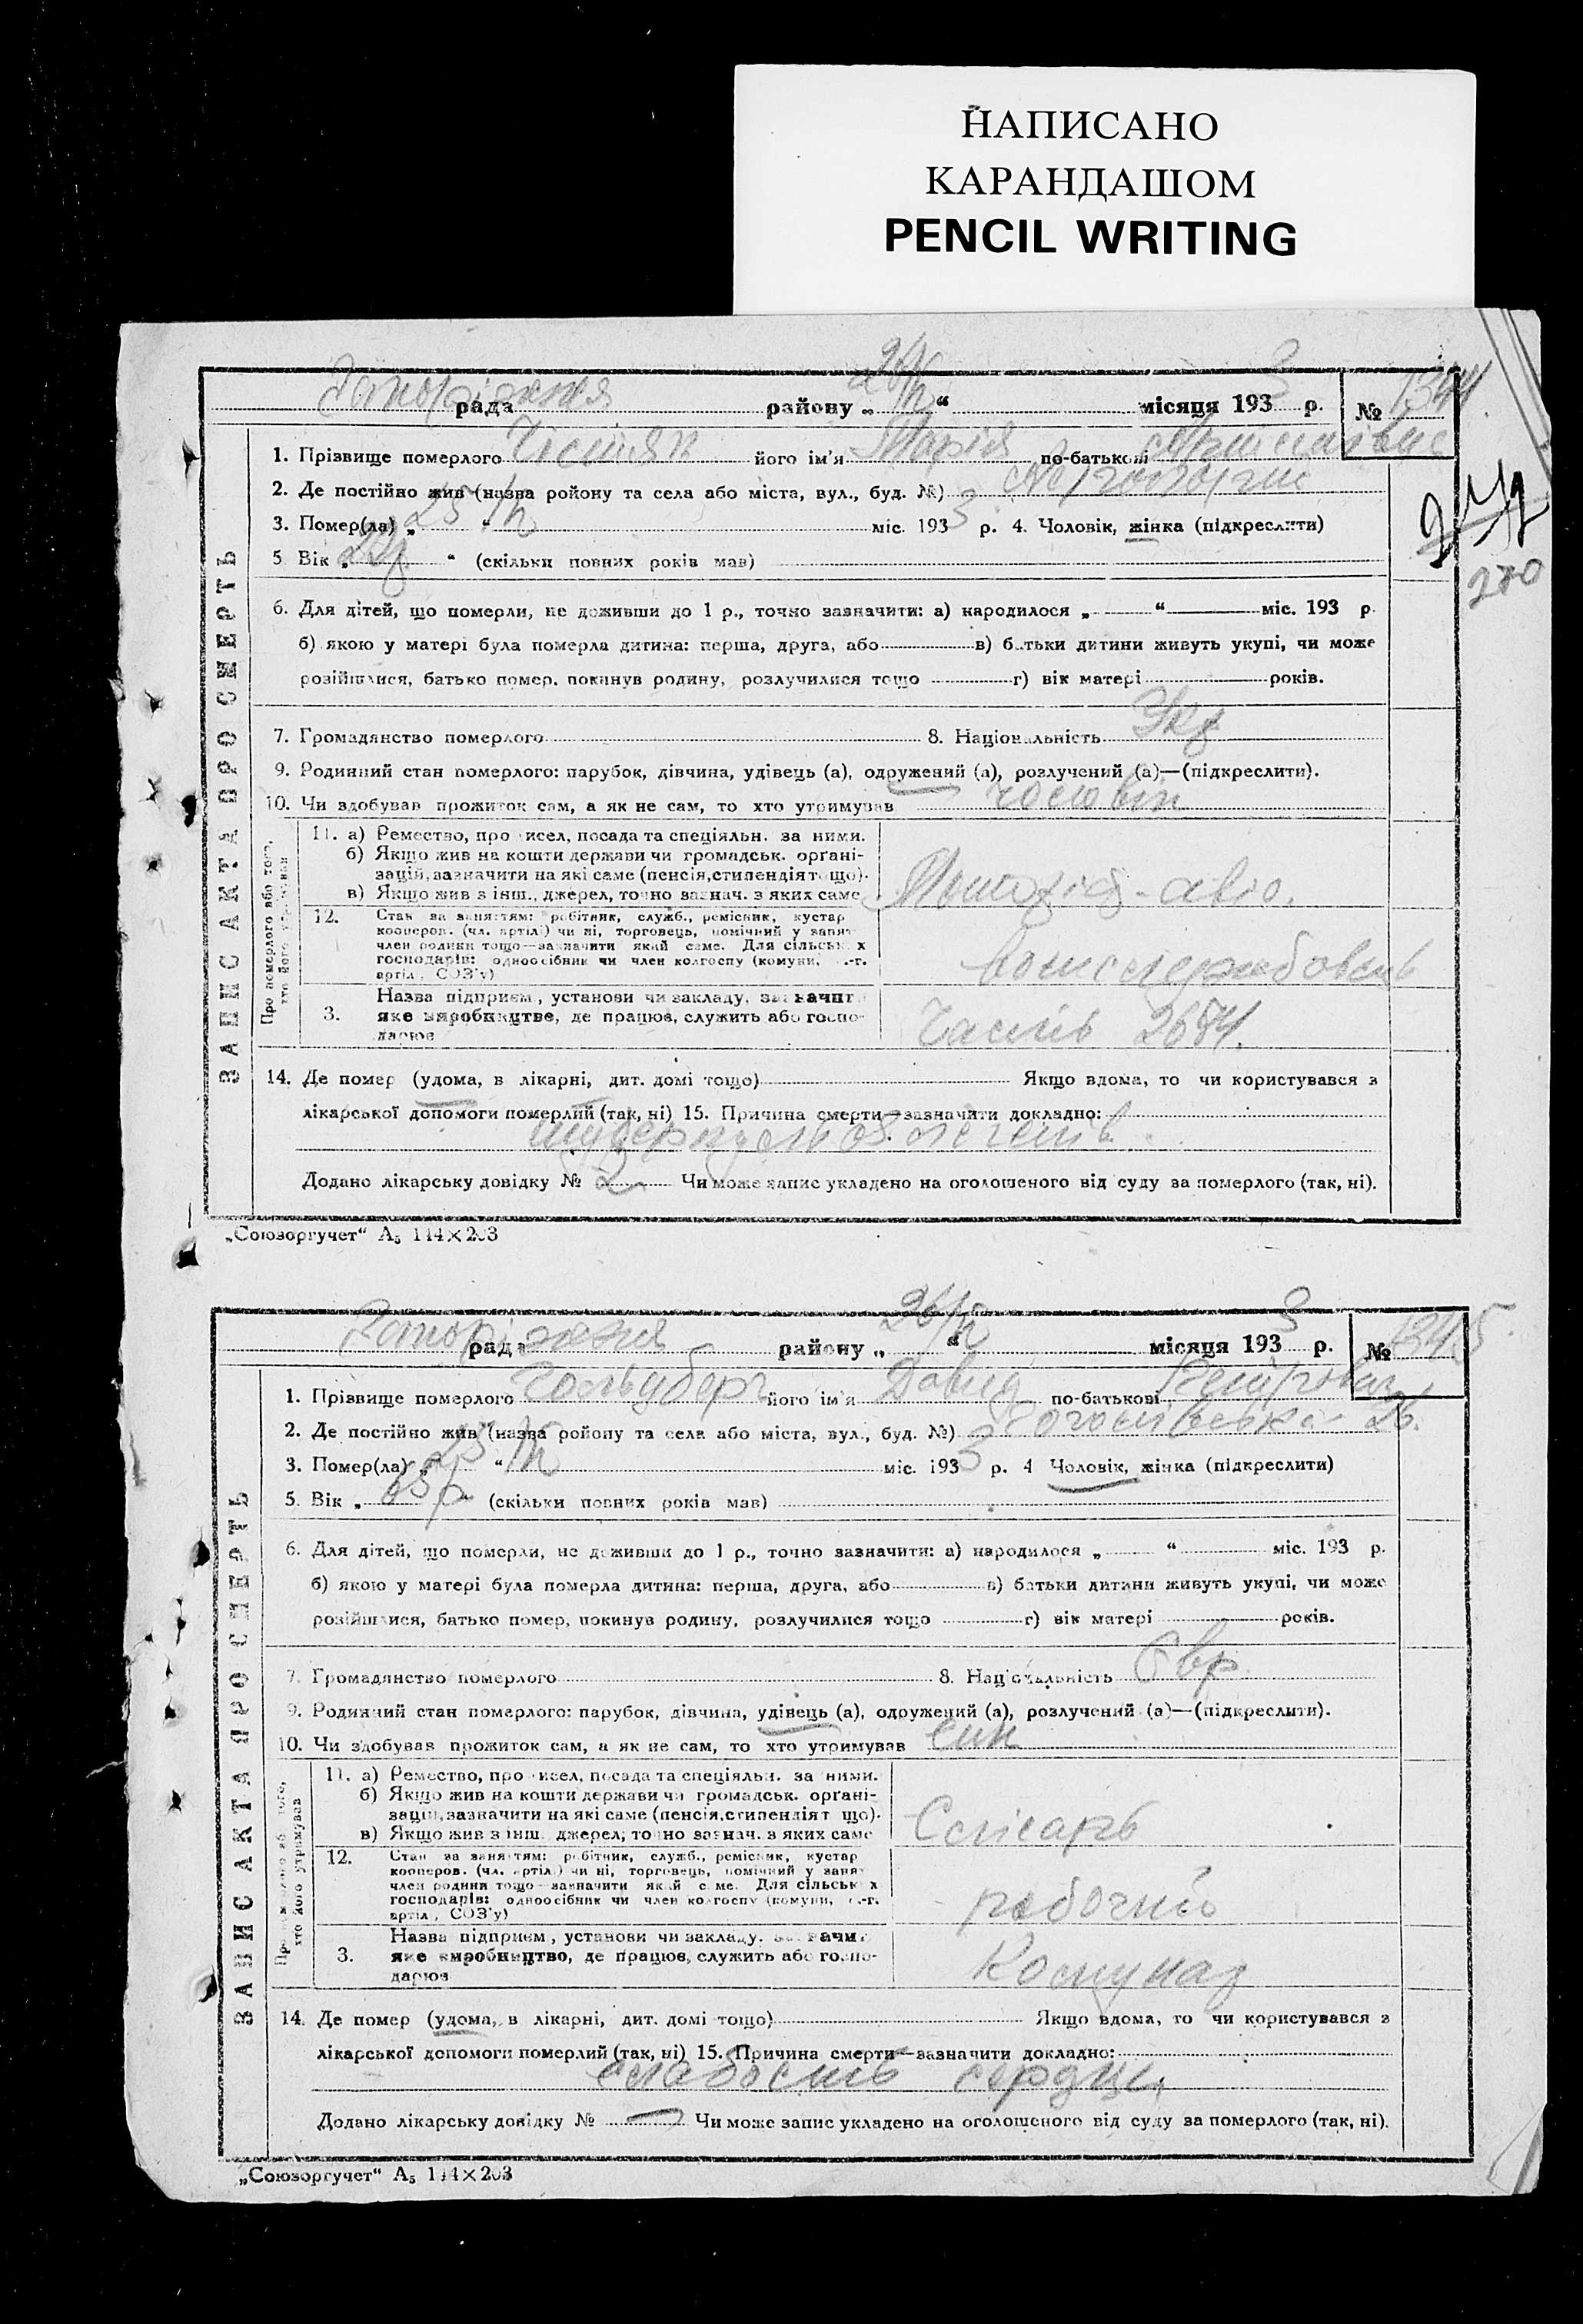 НАПИСАНО
КАРАНДАШОМ
PENCIL WRITING
Запоріжжя рада району „ “ місяця 1933 р. № 1344
1. Прізвище померлого його ім'я Марія по-батькові
2. Де постійно жив (назва ройону та села або міста, вул., буд. №)
3. Помер(ла) „ 25 “ міс. 1933 р. 4. Чоловік, жінка (підкреслити)
5 Вік „ “ (скільки повних років мав)
6. Для дітей, що померли, не доживши до 1 р., точно зазначити: а) народилося „ “ міс. 193 р.
б) якою у матері була померла дитина: перша, друга, або в) батьки дитини живуть укупі, чи може
розійшлися, батько помер, покинув родину, розлучилися тощо г) вік матері років.
7. Громадянство померлого 8. Національність Укр
9. Родинний стан померлого: парубок, дівчина, удівець (а), одружений (а), розлучений (а)—(підкреслити).
10. Чи здобував прожиток сам, а як не сам, то хто утримував чоловік
ЗАПИС АКТА ПРО СМЕРТЬ
Про померлого або того, хто його утримував
11. а) Ремество, про исел, посада та спеціяльн. за ними.
б) Якщо жив на кошти держави чи громадськ. орґані-
зацій, зазначити на які саме (пенсія, стипендія тощо).
в) Якщо жив з інш., джерел, точно зазнач. з яких саме
12. Стан за заняттям: робітник, служб., ремісник, кустар
кооперов. (чл. артіл.) чи ні, торговець, помічний у занят
член родини тощо—зазначити який саме. Для сільськ х
господарів: одноосібник чи член колгоспу (комуни, .-г.
артіл, СОЗ'у)
3. Назва підприєм, установи чи закладу, зазначит
яке виробництве, де працюв, служить або госпо-
дарюв
Частів 2684.
14. Де помер (удома, в лікарні, дит. домі тощо) Якщо вдома, то чи користувався з
лікарської допомоги померлий (так, ні) 15. Причина смерти—зазначити докладно:
туберкульоз легенів
Додано лікарську довідку № 2 Чи може запис укладено на оголошеного від суду за померлого (так, ні).
„Союзоргучет“ А₅ 144×203
270
Запоріжжя рада району „ “ місяця 1933 р. № 1345
1. Прізвище померлого Гольдберг його ім'я Давид по-батькові
2. Де постійно жив (назва ройону та села або міста, вул., буд. №) 26.
3. Помер(ла) „ 25 “ міс. 1933 р. 4 Чоловік, жінка (підкреслити)
5. Вік „ “ (скільки повних років мав)
6. Для дітей, що померли, не доживши до 1 р., точно зазначити: а) народилося „ “ міс. 193 р.
б) якою у матері була померла дитина: перша, друга, або в) батьки дитини живуть укупі, чи може
розійшлися, батько помер, покинув родину, розлучилися тощо г) вік матері років.
7. Громадянство померлого 8. Національність Євр
9. Родинний стан померлого: парубок, дівчина, удівець (а), одружений (а), розлучений (а)—(підкреслити).
10. Чи здобував прожиток сам, а як не сам, то хто утримував син
ЗАПИС АКТА ПРО СМЕРТЬ
11. а) Ремество, про исел, посада та спеціяльн. за ними.
б) Якщо жив на кошти держави чи громадськ. орґані-
зацій, зазначити на які саме (пенсія, стипендія т що).
в) Якщо жив з інш. джерел, точно зазнач. з яких саме
Слісарь
12. Стан за заняттям: робітник, служб., ремісник, кустар
кооперов. (чл. артіл.) чи ні, торговець, помічний у занят
член родини тощо—зазначити який саме. Для сільськ х
господарів: одноосібник чи член колгоспу (комуни, .-г.
артіл, СОЗ'у)
робочий
3. Назва підприєм, установи чи закладу, зазначит
яке виробництво, де працюв, служить або госпо-
дарюв
Комунар
14. Де помер (удома, в лікарні, дит. домі тощо) Якщо вдома, то чи користувався з
лікарської допомоги померлий (так, ні) 15. Причина смерти—зазначити докладно:
слабость сердця
Додано лікарську довідку № — Чи може запис укладено на оголошеного від суду за померлого (так, ні).
„Союзоргучет“ А₅ 144×203